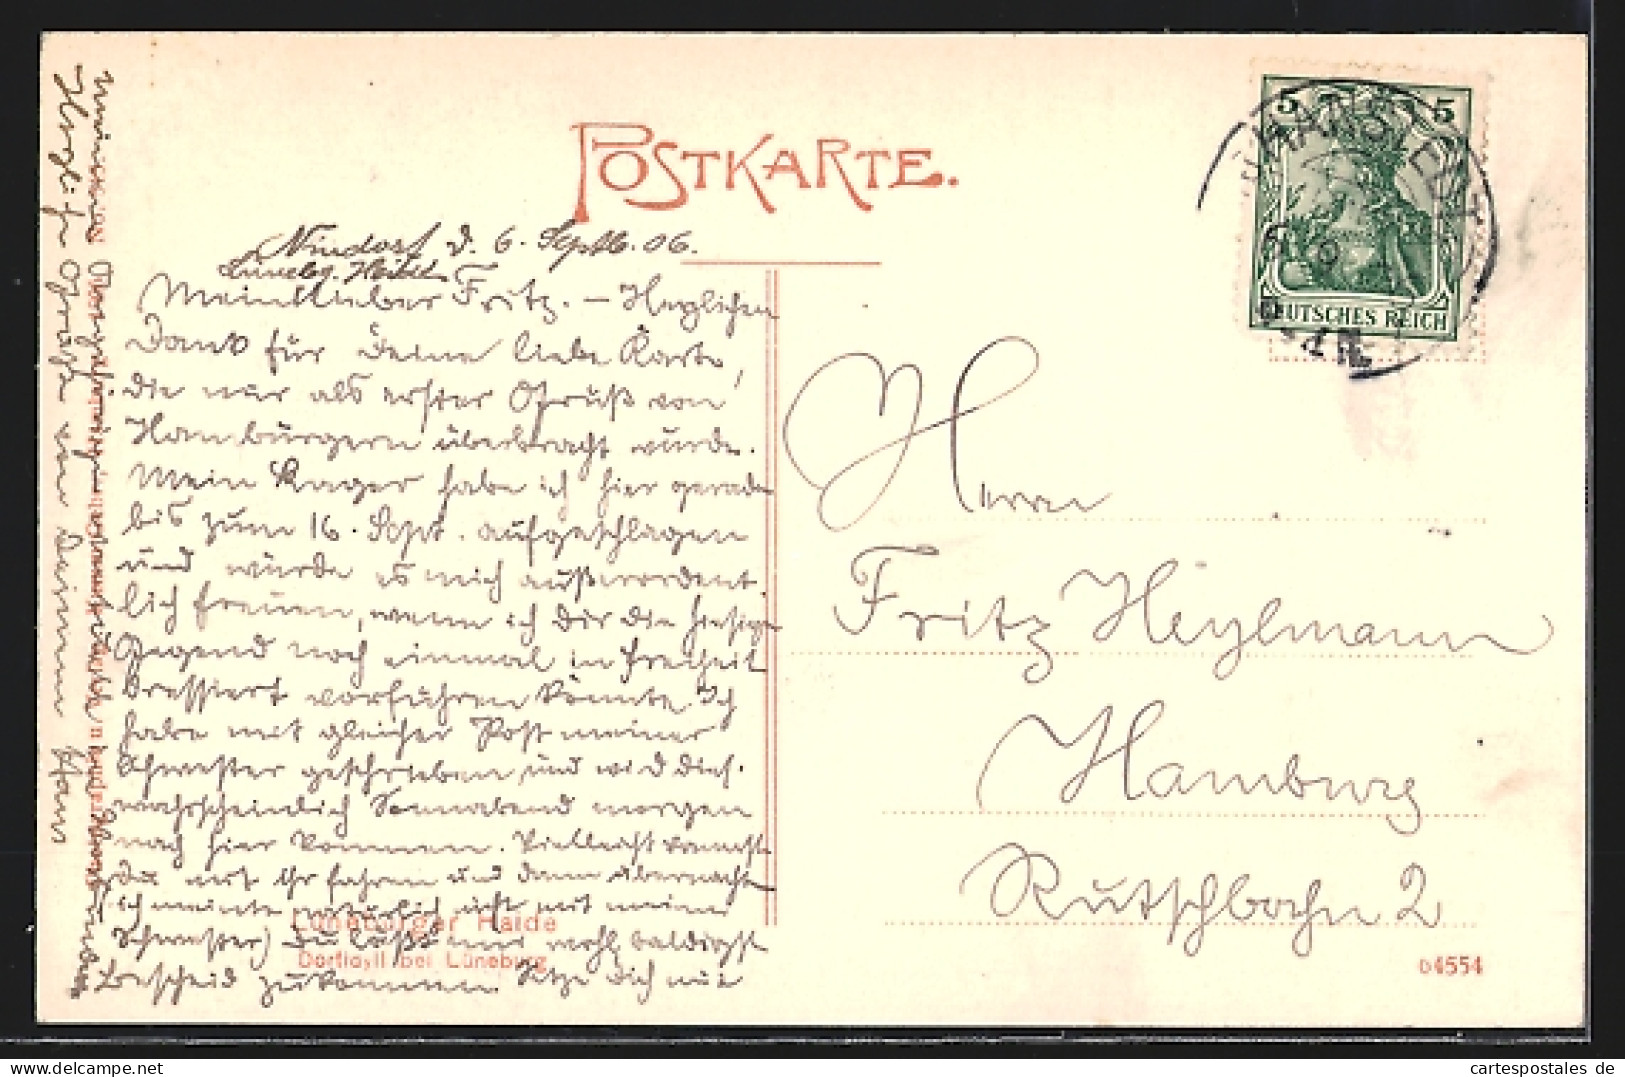 POSTKARTE.
5 5
DEUTSCHES REICH
HANSTEDT
Nindorf d. 6. Septb. 06.
Lünebg. Heide
Mein lieber Fritz. – Herzlichen
Dank für Deine liebe Karte,
die mir als erster Gruß von
Hamburgern überbracht wurde.
Mein Lager habe ich hier gerade
bis zum 16. Sept. aufgeschlagen
und würde es mich außerordent
lich freuen, wenn ich Dir die hiesige
Gegend noch einmal in Freiheit
dressiert vorführen könnte. Ich
habe mit gleicher Post meiner
Schwester geschrieben und wird dies.
wahrscheinlich Sonnabend morgen
nach hier kommen. Vielleicht kannst
Du mit ihr fahren und dann übernachten
(ich meine natürlich nicht mit meiner
Schwester) Du läßt mir wohl baldigst
Bescheid zukommen. Setze Dich mit
Herzliche Grüße von Deinem Hans
Lüneburger Haide
Dorfidyll bei Lüneburg.
Herrn
Fritz Heylmann
Hamburg
Rutschbahn 2
D4554
cartespostales de